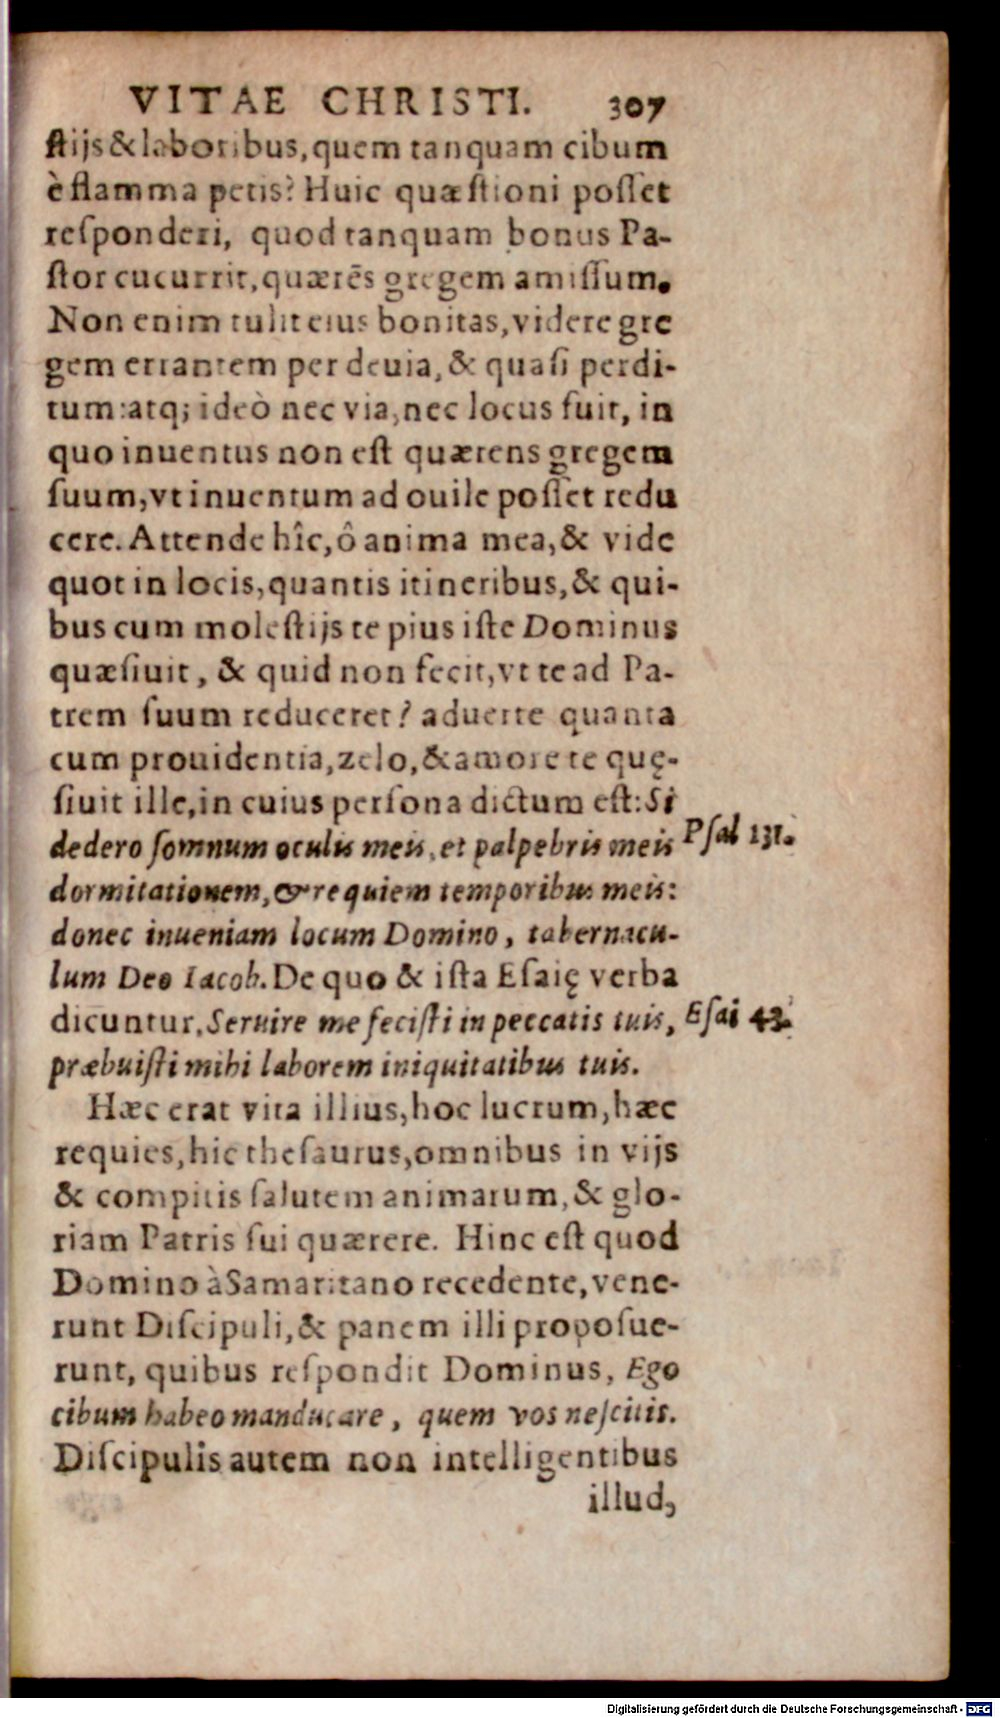 VITAE CHRISTI. 307
ſtijs & laboribus, quem tanquam cibum
è flamma petis? Huic quæſtioni poſſet
reſponderi, quod tanquam bonus Pa-
ſtor cucurrit, quærẽs gregem amiſſum.
Non enim tulit eius bonitas, videre gre
gem errantem per deuia, & quaſi perdi-
tum: atq; ideò nec via, nec locus fuit, in
quo inuentus non eſt quærens gregem
ſuum, vt inuentum ad ouile poſſet redu
cere. Attende hîc, ô anima mea, & vide
quot in locis, quantis itineribus, & qui-
bus cum moleſtijs te pius iſte Dominus
quæſiuit, & quid non fecit, vt te ad Pa-
trem ſuum reduceret? aduerte quanta
cum prouidentia, zelo, & amore te quę-
ſiuit ille, in cuius perſona dictum eſt: Si
dedero ſomnum oculis meis, et palpebris meis Pſal 131.
dormitationem, & requiem temporibus meis:
donec inueniam locum Domino, tabernacu-
lum Deo Iacob. De quo & iſta Eſaię verba
dicuntur, Seruire me feciſti in peccatis tuis, Eſai 43.
præbuiſti mihi laborem iniquitatibus tuis.
Hæc erat vita illius, hoc lucrum, hæc
requies, hic theſaurus, omnibus in vijs
& compitis ſalutem animarum, & glo-
riam Patris ſui quærere. Hinc eſt quod
Domino à Samaritano recedente, vene-
runt Diſcipuli, & panem illi propoſue-
runt, quibus reſpondit Dominus, Ego
cibum habeo manducare, quem vos neſcitis.
Diſcipulis autem non intelligentibus
illud,
Digitalisierung gefördert durch die Deutsche Forschungsgemeinschaft - DFG